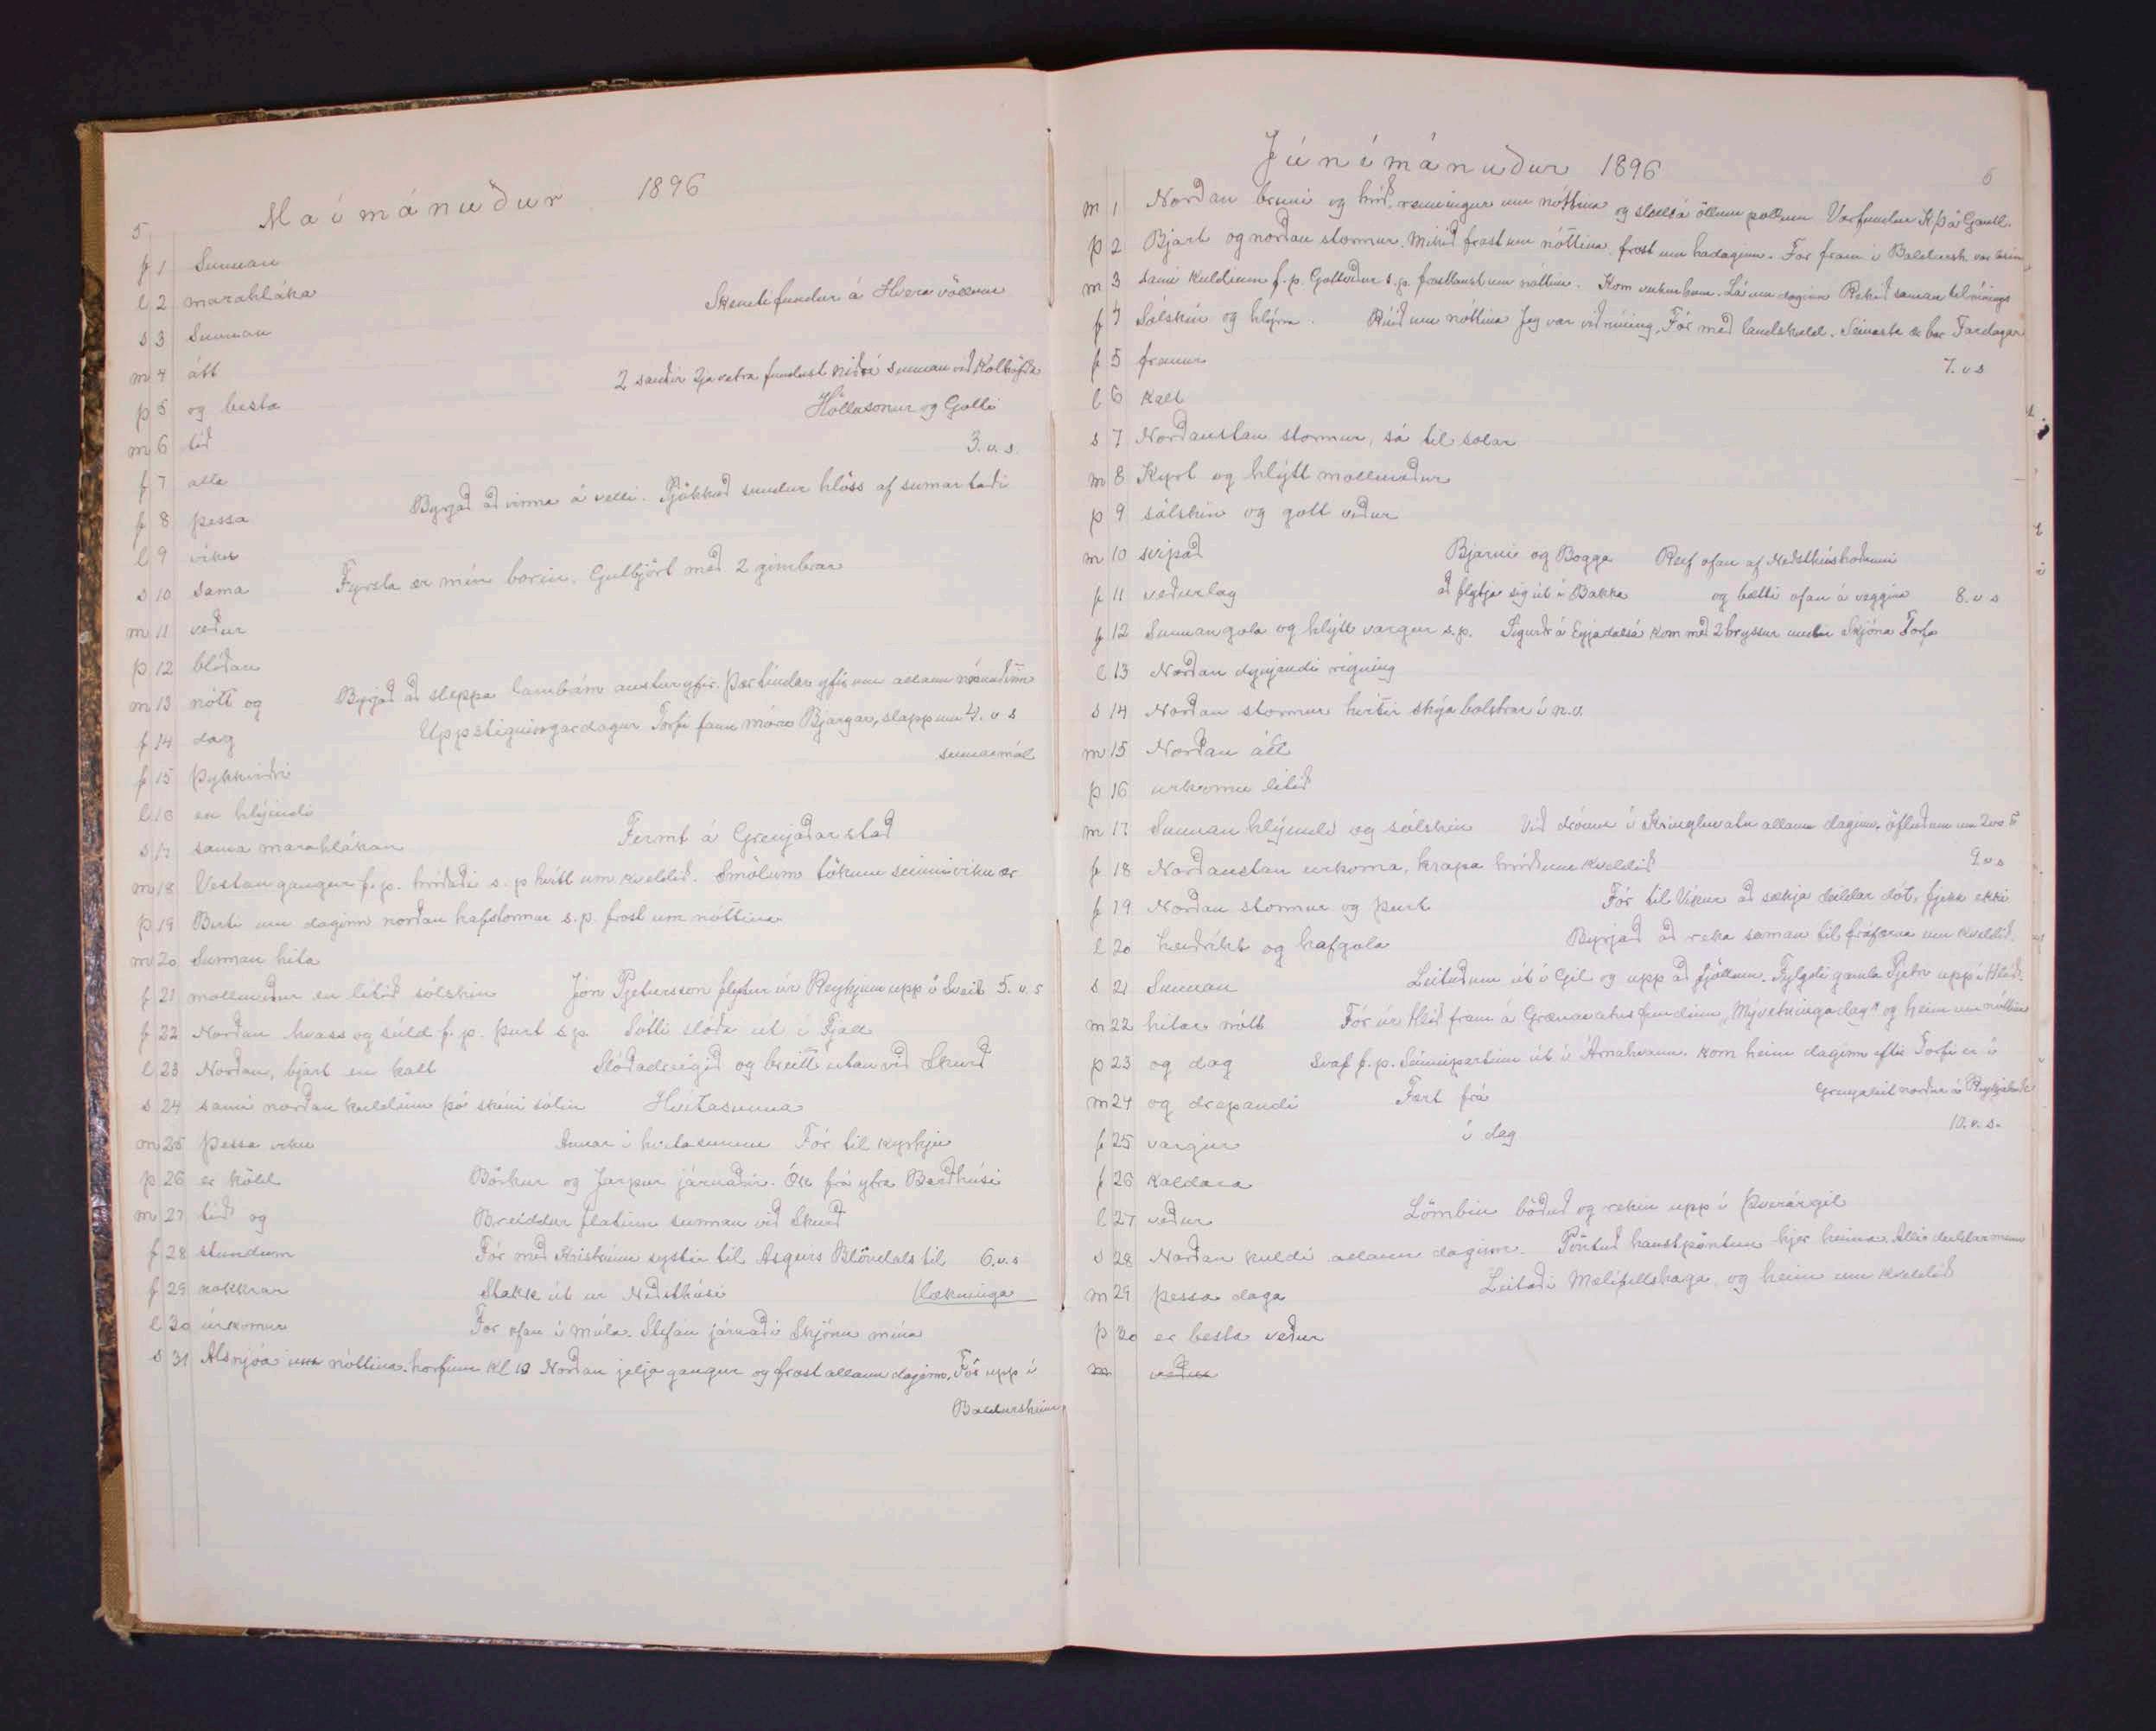 Maímánuður 1896
5
f 1 Sunnan
l 2 marahláka Skemtifundur á Hveravöllum
s 3 Sunnan
m 4 átt 2 sauðir 2ja vetra fundust sunnan við
þ 5 og besta og Golti
m 6 tíð 3. v. s.
f 7 alla
f 8 þessa Byrjað að vinna á velli. sundur hlöss af sumartaði
l 9 viku
s 10 sama Fyrsta ær mín borin. Gulbjört með 2 gimbrar
m 11 veður
þ 12 blíðan
m 13 nótt og Byrjað að sleppa lambám austur yfir. yfir um allann
f 14 dag Uppstigningardagur Torfi fann Bjargar, 4. v s
f 15 þykkviðri sumarmál
l 16 en hlýindi
s 17 sama marahlákan Fermt á Grenjaðarstað
m 18 Vestangangur f. p. hríðaði s. p hvítt um kveldið. Smölum tökum
þ 19 Birti um daginn norðan hafstormur s.p. frost um nóttina
m 20 Sunnan hita
f 21 molluveður en lítið sólskin Jón Pjetursson flytur úr Reykjum upp í Sveit 5. v. s
f 22 Norðan hvass og súld f. p. þurt s.p. Sótti slóða út í Fjall
l 23 Norðan, bjart en kalt Slóðadreigið og breitt utan við Skurð
s 24 sami norðan kuldinn þó skíni sólin Hvítasunna
m 25 þessa viku Annar í hvítasunnu Fór til kyrkju
þ 26 er köld Börkur og Jarpur járnaðir. Ók frá ytra Barðhúsi
m 27 tíð og Breiddur flatinn sunnan við Skurð
f 28 stundum Fór með Kristrúnu systir til Asgeirs Blöndals til 6. v. s
f 29 nokkrar Stakk út úr Neðsthúsi lækninga
l 30 úrkomur Fór ofan í Múla. Stefán járnaði Skjónu mína
s 31 Alsnjóa nóttina. horfinn kl 10 Norðan jelja gangur og frost allann daginn. Fór upp í
Baldursheim
Júnímánuður 1896
6
m 1 Norðan bruni og hríð. renningur um nóttina og á öllum pollum Vorfundur K.Þ á Gautl.
þ 2 Bjart og norðan stormur. Mikið frost um nóttina. frost um hádaginn. Fór fram í
m 3 sami kuldinn f. p. Gottveður s. p. frostlaust um nóttina. Kom daginn Rekið saman til rúnings
f 4 Sólskin og hlýrra. Rúið um nóttina Jeg var við rúning. Fór með landskuld. Fardagar
f 5 framur 7. v s
l 6 kalt
s 7 Norðaustan stormur, sá til solar
m 8 Kyrt og hlýtt molluveður
þ 9 sólskin og gott veður
m 10 svipað Bjarni og Bogga Reif ofan af
f 11 veðurlag að flytja sig út í Bakka og bætti ofan á veggina 8. v s
f 12 Sunnangola og hlýtt vargur s. p. Sigurður á Eyjadalsá kom með 2 hryssur undir Skjóna Torfa
l 13 Norðan dynjandi rigning
s 14 Norðan stormur hvítir skýa bolstrar í n.v.
m 15 Norðan átt
þ 16 urkomu lítið
m 17 Sunnan hlýindi og sólskin Við dróum í Kringluvatn allann daginn. öfluðum um 200
f 18 Norðaustan urkoma, krapa hríð um kveldið 9 v s
f 19 Norðan stormur og þurt Fór til Víkur að sækja deildar dót, fjekk ekki
l 20 heiðríkt og hafgola Byrjað að reka saman til fráfærna um kveldið.
s 21 Sunnan Leituðum út í Gil og upp að fjöllum. Fylgdi gamla Pjetri upp í Hlíð.
m 22 hitar nótt Fór úr Hlíð fram á Grænavatns fundinn „Mývetningadag“ og heim um nóttina
þ 23 og dag Svaf f. p. Seinnipartinn út í Arnahvam. kom heim daginn eftir Torfi er í
m 24 og drepandi Fært frá norður á
f 25 vargur í dag 10. v. s.
f 26 kaldara
l 27 veður Lömbin böðuð og rekin upp í Þverárgil
s 28 Norðan kuldi allann daginn. Pöntuð haustpöntun hjer heima. Allir deildarmenn
m 29 þessa daga Leitaði Mælifellshaga, og heim um kveldið
þ 30 er besta veður
m veður